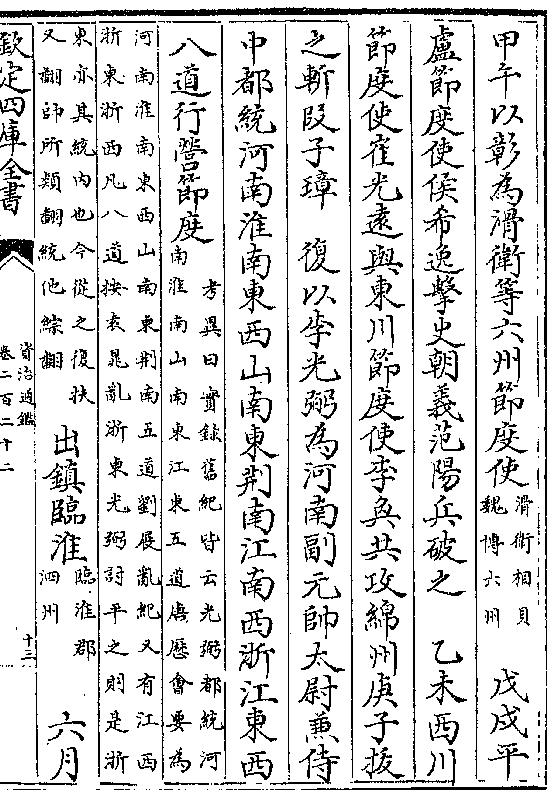 甲午以彰為滑衛等六州節度使滑衛相貝魏博六州 戊戌平
盧節度使侯希逸擊史朝義范陽兵破之 乙未西川
節度使崔光遠與東川節度使李奐共攻綿州庚子拔
之斬段子璋 復以李光弼為河南副元帥太尉兼侍
中都統河南淮南東西山南東荆南江南西浙江東西
八道行營節度考異曰實錄舊紀皆云光弼都統河南淮南山南東江東五道唐歷會要為
河南淮南東西山南東荆南五道劉展亂紀又有江西
浙東浙西凡八道按袁晁亂浙東光弼討平之則是浙
東亦其統内也今從之復扶又翻帥所類翻統他綜翻出鎮臨淮臨淮郡泗州 六月
欽定四庫全書
資治通鑑
卷二百二十二
十三